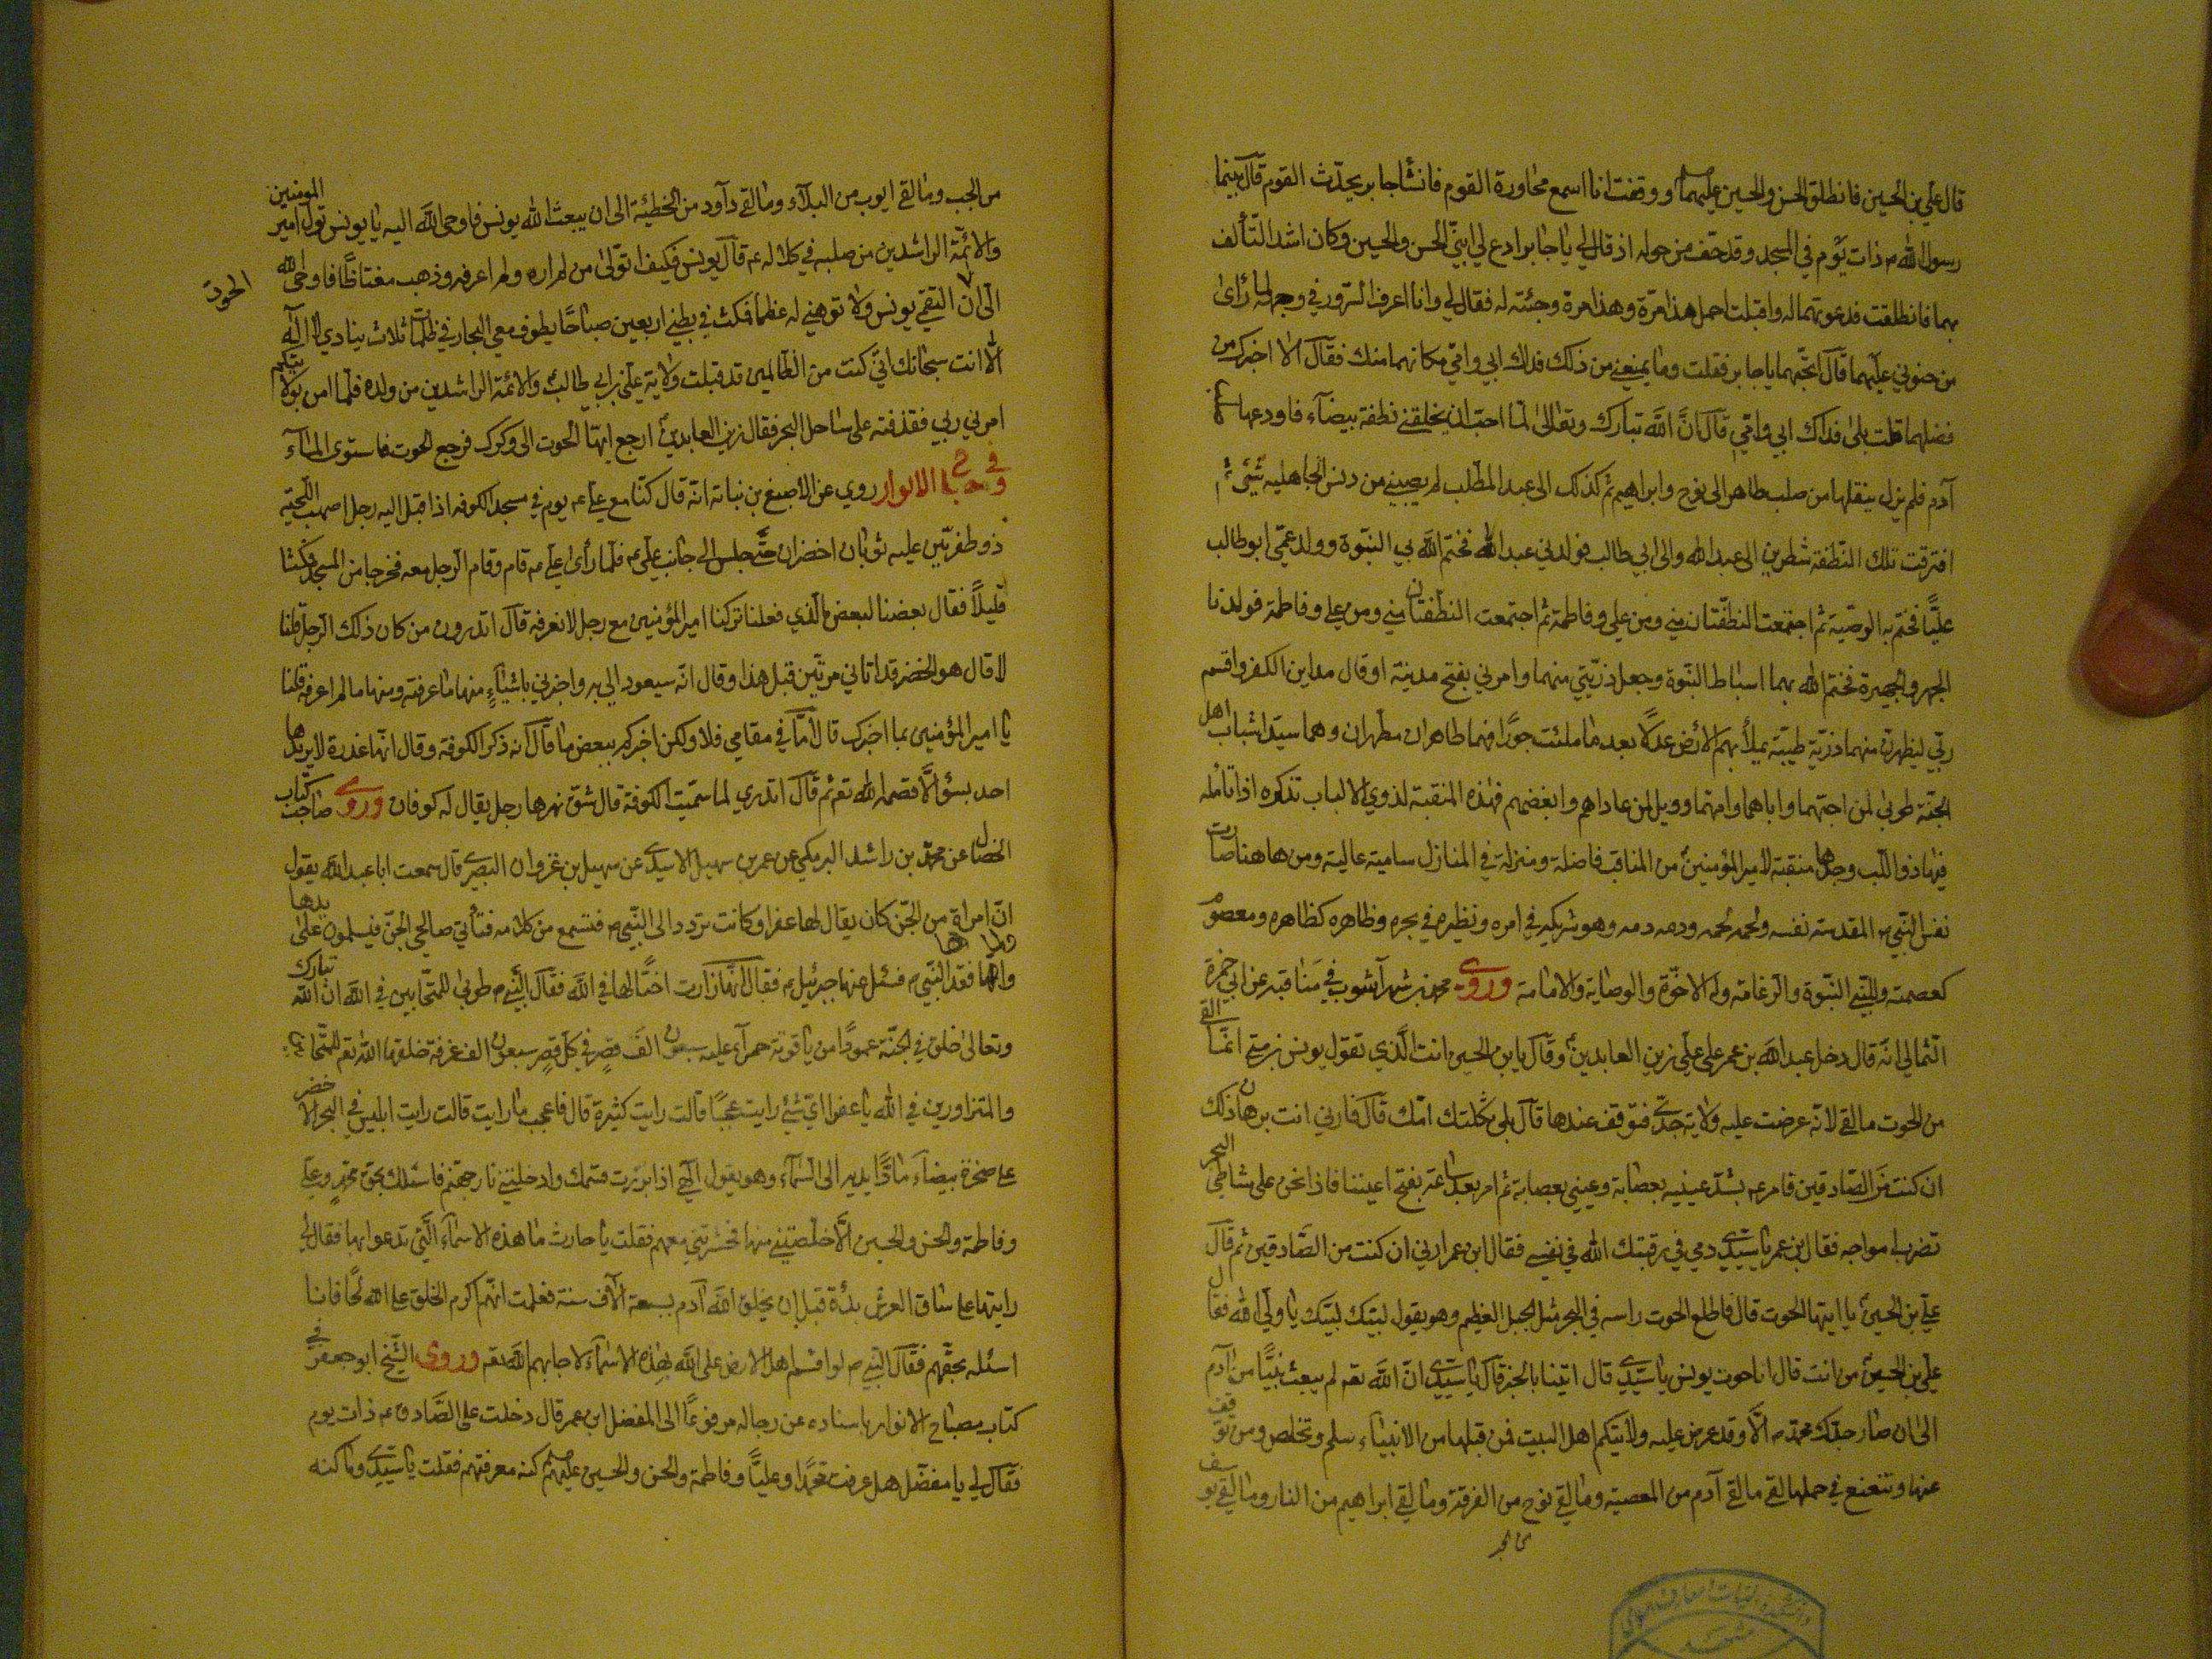 قال علي بن الحسين فانطلق الحسن والحسين عليهما ووقفت انا اسمع محاورة القوم فانشا جابر يحدّث القوم قال بينما
رسول الله ص ذات يوم في المسجد وقد حف من حوله اذ قال لي يا جابر ادع لي ابنيّ الحسن والحسين وكان اشد التألف
بهما فانطلقت فدعوتهما له واقبلت احمل هذا مرّة وهذا مرة وجئته له فقال لي وانا اعرف السرور في وجهه لما رأى
من حنوني عليهما قال اتحبّهما يا جابر فقلت وما يمنعني من ذلك فداك ابي وامّي مكانهما منك فقال الا اخبرك من
فضلهما قلت بلى فداك ابي وامّي قال انّ الله تبارك وتعالى لمّا احبّ ان يخلقني نطفة بيضآء فاودعها
آدم فلم يزل ينقلها من صلب طاهر الى نوح وابراهيم ثم كذلك الى عبد المطّلب لم يصبني من دنس الجاهليه شيئ ثم
افترقت تلك النّطفة شطرين الى عبد الله والى ابي طالب فولدني عبد الله فختم الله بي النبّوة وولد عمّي ابو طالب
عليّا فختم به الوصيّة ثم اجتمعت النطفتان مني ومن علي وفاطمة ثم اجتمعت النطفتان مني ومن علي وفاطمة فولدنا
الجهر والجهيرة فختم الله بهما اسباط النبّوة وجعل ذرّيتي منهما وامرني بفتح مدينة او قال مداين الكفر واقسم
ربّي ليظهرنّ منهما ذرّية طيبّة يملأ بهم الارض عدلًا بعد ما ملئت جورًا فهما طاهران مطهران وهما سيّدا شباب اهل
الجنّة طوبى لمن احبّهما واباهما وامّهما وويل لمن عاداهم وابغضهم فهذه المنقبة لذوي الالباب تذكره اذا تأمله
فيها ذو اللّب وجدها منقبة لامير المؤمنين من المناقب فاضلة ومنزلة في المنازل سامية عالية ومن هاهنا صارت
نفس النّبي ص المقدسة نفسه ولحمه لحمه ودمه دمه وهو شريكه في امره ونظيره في بحره وظاهره كظاهره ومعصوم
كعصمته وللنّبي النبّوة والزعامة وله الاخوّة والوصاية والامامة وروى محمد بن شهر آشوب في مناقبه عن ابي حمزة
الثمالي انّه قال دخل عبد الله بن عمر على علي زين العابدين وقال يابن الحسين انت الّذي تقول يونس بن متى انمّا القي
من الحوت مالقي لانّه عرضت عليه ولاية جدّي فتوقف عندها قال بلى ثكلتك امّك قال فارني انت برهان ذلك
ان كنت من الصّادقين فامر ع بشدّ عينيه بعصابة وعيني بعصابة ثم امر بعد ساعة بفتح اعيننا فاذا نحن على شاطئ البحر
تضرب امواجه فقال ابن عمر يا سيّدي دمي في رقبتك الله في نفسي فقال ابن عمر ارني ان كنت من الصّادقين ثم قال
علي بن الحسين يا ايتها الحوت قال فاطلع الحوت راسه في البحر مثل الجبل العظيم وهو يقول لبيّك لبيّك يا ولّي الله فقال
علي بن الحسين من انت قال انا حوت يونس يا سيّدي قال اتينا بالخبر قال يا سيّدي انّ الله تعه لم يبعث نبيًّا من آدم
الى ان صار جدّك محمدّ ص الّا وقد عرض عليه ولايتكم اهل البيت فمن قبلها من الانبيآء سلم وتخلص ومن توقف
عنها وتتعتع في حملها لقي مالقي آدم من المعصية ومالقي نوح من الغرقة ومالقي ابراهيم من النار ومالقي يوسف
من الجب
من الجب ومالقي ايوب من البلآء ومالقي دآود من الخطيئة الى ان يبعث الله يونس فاوحى الله اليه يا يونس تول امير المومنين
والائمّة الراشدين من صلبه في كلام له ع قال يونس فكيف اتولّى من لم اره ولم اعرفه وذهب مغتاظًا فاوحى الله
الحوت
الى ان التقمي يونس ولا توهني له عظما فمكث في بطني اربعين صباحًا يطوف معي البحار في ظلمات ثلاث ينادي لا اله
الّا انت سبحانك انّي كنت من الظالمين قد قبلت ولاية علي بن ابي طالب والائمة الراشدين من ولده فلمّا امن بولايتكم
امرني ربي فقذفته على ساحل البحر فقال زين العابدين ارجع ايهّا الحوت الى وكرك فرجع الحوت فاستوى المآء
الانوار روي عن الاصبغ بن نباته انّه قال كنّا مع علي ع يوم في مسجد الكوفه اذا قبل اليه رجل اصهب اللّحية
ذو طفرتّين عليه ثوبان اخضران حتّى جلس الى جانب علي ع فلمّا رأى علي ع قام وقام الرجل معه فخرجا من المسجد فمكثنا
قليلًا فقال بعضنا لبعض ما الّذي فعلنا تركنا امير المؤمنين مع رجل لا نعرفه قال اتدرون من كان ذلك الرّجل قلنا
لا قال هو الخضر قد اتاني مرتّين قبل هذا وقال انّه سيعود الي واخبرني باشيآءٍ منها ما عرفته ومنها ما لم اعرفه قلنا
يا امير المؤمنين بما اخبرك قال امّا في مقامي فلا ولكن اخبركم ببعض ما قال انه ذكر الكوفة وقال انهّا غدرة لا يريدها
احد بسؤ الّا قصمه الله تعه ثم قال اتدري لما سمّيت الكوفة قال شقّ نهرها رجل يقال له كوفان وروى صاحب كتاب
الخصال عن محمدّ بن راشد البرمكي عن عمر بن سهيل الاسيدي عن سهيل بن غزوان البصري قال سمعت ابا عبد الله يقول
انّ امراة من الجّن كان يقال لها عفرا وكانت تردد الى النّبي ص فتسمع من كلامه فتأتي صالحي الجّن فيسلمون على يدها
وانها فقدها النّبي ص فسئل عنها جبرئيل ع فقال انهّا زارت اختًا لها في الله فقال النّبي ص طوبى للمتحّابين في الله انّ الله تبارك
وتعالى خلق في الجنّة عمودًا من ياقوتة حمرآء عليه سبعون الف قصرٍ في كل قصرٍ سبعون الف غرفة خلقها الله تعه للمتّحابين
والمتزاورين في الله يا عفرا ايّ شئ رايت عجبًا قالت رايت كثيرة قال فاعجب ما رايت قالت رايت ابليس في البحر الاخضر
على صخرة بيضآء مادًّا يديه الى السّمآء وهو يقول الهي اذا بررت قسمك وادخلتني نار جهنّم فاسئلك بحق محمّدٍ وعلي
وفاطمة والحسن والحسين الّا خلّصتني منها وحشرتني معهم فقلت يا حارث ما هذه الاسمآء الّتي تدعوا بها فقال لي
رايتها على ساق العرش بدئة قبل ان يخلق الله آدم بسبعة آلاف سنة فعلمت انّهم اكرم الخلق على الله تعًا فانا
اسئله بحقّهم فقال النّبي ص لو اقسم اهل الارض على الله بهذه الاسمآء لاجابهم الله تعه وروى الشّيخ ابو جعفر في
كتاب مصباح الانوار باسناده عن رجاله مرفوعًا الى المفضل ابن عمر قال دخلت على الصّادق ع ذات يوم
فقال لي يا مفضّل هل عرفت محمدًا وعليًّا وفاطمة والحسن والحسين عليهم كنه معرفتهم فقلت يا سيّدي وما كنه